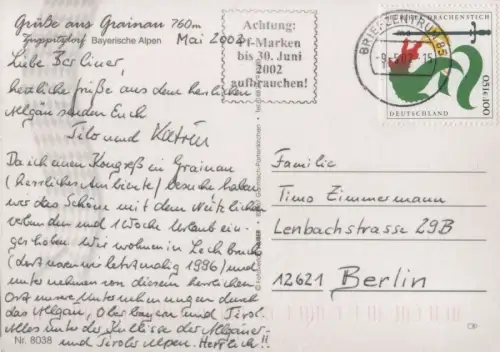 Grüße aus Grainau 760m
Zugspitzdorf Bayerische Alpen
Mai 2002
Liebe Berliner,
herzliche Grüße aus dem herrlichen
Allgäu senden Euch
Tilo und Katrin
Da ich einen Kongreß in Grainau
(herrliches Ambiente) besuche haben
wir das Schöne mit dem Nützlichen
verbunden und 1 Woche Urlaub ein-
geschoben. Wir wohnen in Lechbruck
(dort waren wir letztmalig 1996) und
unternehmen von diesem herrlichen
Ort unsere Unternehmungen durch
das Allgäu, Oberbayern und Tirol.
Alles unter der Kulisse der Allgäuer
und Tiroler Alpen. Herrlich!!
Nr. 8038
Achtung:
Pf-Marken
bis 30. Juni
2002
aufbrauchen!
BRIEFZENTRUM 85
-9.-5.02-15
DRACHENSTICH
DEUTSCHLAND
Familie
Timo Zimmermann
Lenbachstrasse 29B
12621 Berlin